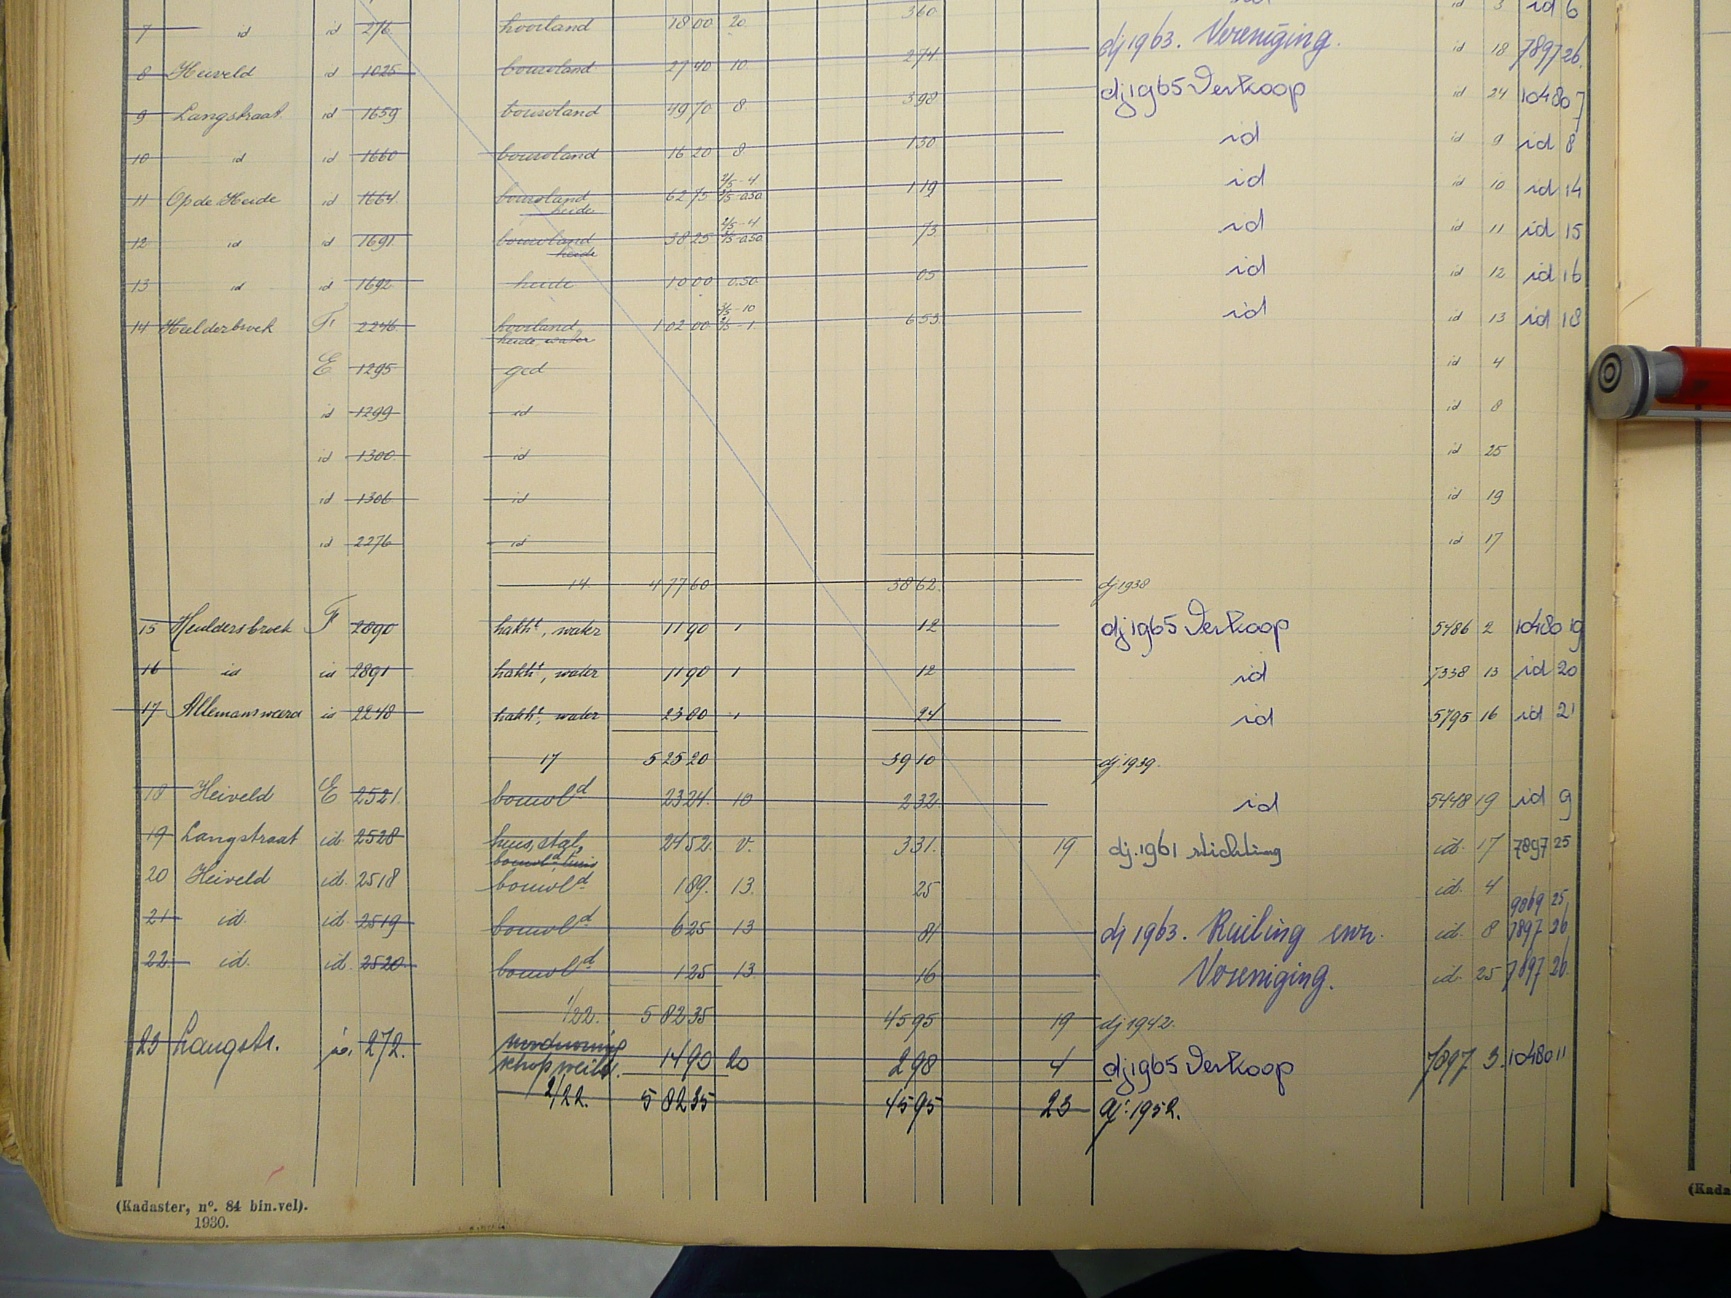 360 id 3 id 6
7 id id 276 hooiland 18 00 20 dj 1963. Vereniging. id 18 7897 26
8 Heiveld id 1025 bouwland 27 40 10 274
9 Langstraat id 1659 bouwland 49 70 8 398 dj 1965 Verkoop id 24 10480 7
10 id id 1660 bouwland 16 20 8 130 id id 9 id 8
11 Op de Heide id 1664 bouwland heide 62 75 2/5 - 4 3/5 - 0.50 119 id id 10 id 14
12 id id 1691 bouwland heide 38 25 2/5 - 4 3/5 - 0.50 73 id id 11 id 15
13 id id 1692 heide 10 00 0.50 05 id id 12 id 16
14 Hulderbroek F 2246 hooiland, heide, water 1 02 00 653 id id 13 id 18
E 1295 ged id 4
id 1299 id id 8
id 1300 id id 25
id 1306 id id 19
id 2276 id id 17
14. 4 77 60 38 62. dj 1938
15 Huldersbroek F 2890 hakht, water 11 90 1 12 dj 1965 Verkoop 5486 2 10480 19
16 id id 2891 hakht, water 11 90 1 12 id 7338 13 id 20
17 Allemansweerd id 2248 hakht, water 23 80 1 24 id 5795 16 id 21
17 5 25 20 39 10 dj 1939.
18 Heiveld E 2521 bouwld 23 24 10 232 id 5448 19 id 9
19 Langstraat id. 2528 huis, stal, bouwld tuin 24 52 v. 331. 19 dj. 1961 stichting id. 17 7897 25
20 Heiveld id. 2518 bouwld 1 89. 13. 25 id. 4 9069 25
21 id. id. 2519 bouwld 6 25 13 81 dj 1963. Ruiling enz. id. 8 7897 26
22. id. id. 2520 bouwld 1 25 13. 16 Vereniging. id. 25 7897 26
1/22. 5 82 35 45 95 19 dj 1942.
23 Langstr. 272. schop weild. 14 90 20 298 4 dj 1965 Verkoop 7897 3. 10480 11
2/22. 5 82 35 45 95 23 dj: 1952.
(Kadaster, nº. 84 bin.vel).
1930.
(Kada